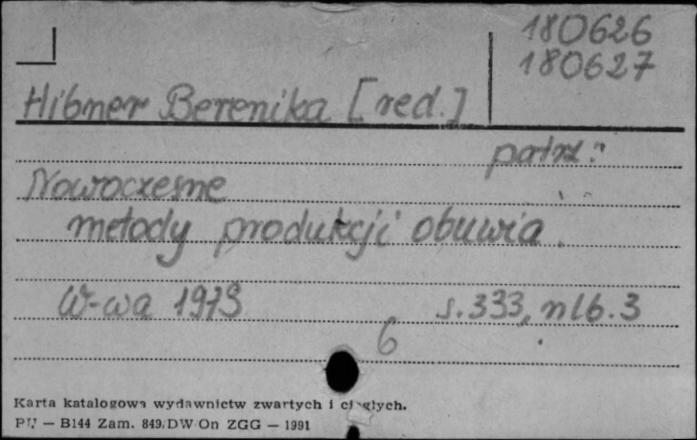 180626
180627
Hibner Berenika [red.]
patrz:
Nowoczesne
metody produkcji obuwia.
W-wa 1973 s. 333, nlb. 3
6
Karta katalogowa wydawnictw zwartych i ciągłych.
PU — B144 Zam. 849/DW/On ZGG — 1991